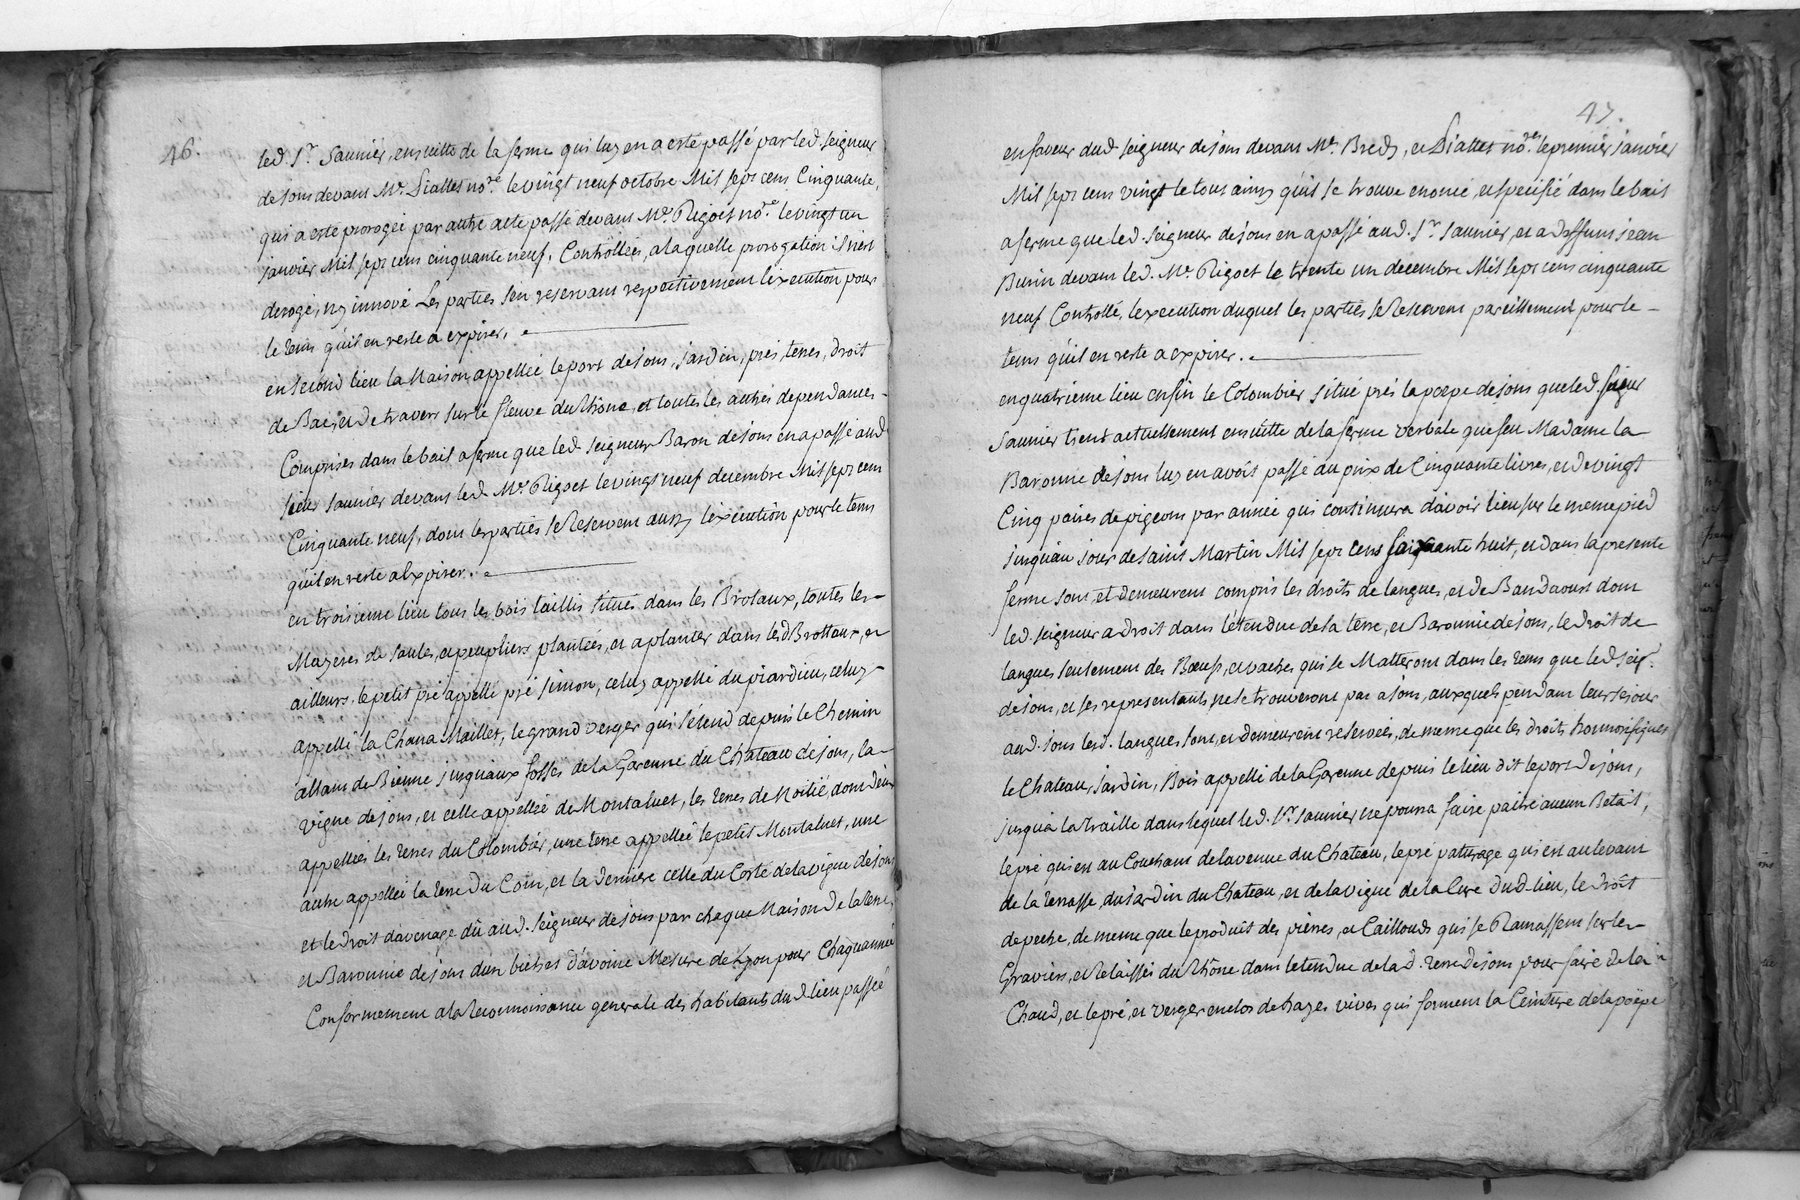 46.
led. Sr. Saunier, ensuitte de la ferme qui luy en a esté passé par led. seigneur
de jons devant Me. Diattet nore. le vingt neuf octobre Mil sept cens Cinquante,
qui a esté prorogée par autre acte passé devant Me. Rigoet nore. le vingt un
janvier Mil sept cens cinquante neuf, Controllées, a laquelle prorogation il n'est
derogé, ny innové Les parties s'en reservant respectivement l'execution pour
le tems qu'il en reste a expirer. ———
en second lieu la Maison appellée le port de jons, jardin, prés, terres, droit
de Bac, et de travers sur le fleuve du Rhône, et toutes les autres dependances -
Comprises dans le bail a ferme que led. seigneur Baron de jons en a passé aud.
sieur saunier devant led. Me. Rigoet le vingt neuf decembre Mil sept cens
Cinquante neuf, dont les parties se Reservent aussy l'éxécution pour le tems
qu'il en reste a Expirer. ———
en troisieme lieu tous les bois taillis situés dans les Brotaux, toutes les -
Mazeres de saules, et peupliers plantées, et a planter dans lesd. Brottaux, et
ailleurs, le petit pré appellé pré simon, celuy appellé du piardieu, celuy
appellé la Chana Maillet, le grand verger qui s'étend depuis le Chemin
allant de Bienne jusqu'aux fossés de la Garenne du Chateau de jons, la -
vigne de jons, et celle appellée de Montaluet, les terres de Moitié, dont deux
appellées les terres du Colombier, une terre appellée le petit Montaluet, une
autre appellée la terre du Coin, et la derniere celle du Costé de la vigne de jons
et le droit d'avenage dû aud. seigneur de jons par chaque Maison de la terre,
et Baronnie de jons d'un bichet d'avoine Mesure de Lyon pour Chaqu'année
Conformement a la Reconnoissance generale des habitants dud. lieu passée
47.
en faveur dud. seigneur de jons devant Me. Bredy, et Diattet nores. le premier janvier
Mil sept cens vingt le tout ainsy qu'il se trouve enoncé, et specifié dans le bail
a ferme que led. seigneur de jons en a passé aud. Sr. saunier, et a deffunt jean
Burin devant led. Me. Rigoet le trente un decembre Mil sept cens cinquante
neuf Controllé, l'execution duquel les parties se Reservent pareillement pour le -
tems qu'il en reste a expirer. ———
en quatrieme lieu enfin le Colombier situé prés la poëpe de jons que led. sieur
saunier tient actuellement ensuitte de la ferme verbale que feu Madame la
Baronne de jons luy en avoit passé au prix de Cinquante livres, et de vingt
Cinq paires de pigeons par année qui continuera d'avoir lieu sur le meme pied
jusqu'au jour de saint Martin Mil sept cens soixante huit, et dans la presente
ferme sont et demeurent compris les droits de langues, et de Bandaoust dont
led. seigneur a droit dans l'étendue de la terre, et Baronnie de jons, le droit de
langues seulement des Boeufs, et vaches qui se Matteront dans les tems que led. seigr.
de jons, et ses representants ne se trouveront pas a jons, auxquels pendant leur sejour
aud. jons lesd. langues sont, et demeurent reservées, de meme que les droits honnorifiques
le Chateau, jardin, Bois appellé de la Garenne depuis le lieu dit le port de jons,
jusqu'a la traille dans lequel led. Sr. saunier ne pourra faire paitre aucun Bétail,
le pré qui est au Couchant de l'avenue du Chateau, le pré paturage qui est au levant
de la terrasse, du jardin du Chateau, et de la vigne de la Cure dud. lieu, le droit
de peche, de meme que le produit des pierres, et Cailloux qui se Ramassent sur les
Graviers, et Relaissés du Rhône dans l'etendue de lad. terre de jons pour faire de la
Chaud, et le pré, et verger enclos de hayes vives qui forment la Ceinture de la poëpe